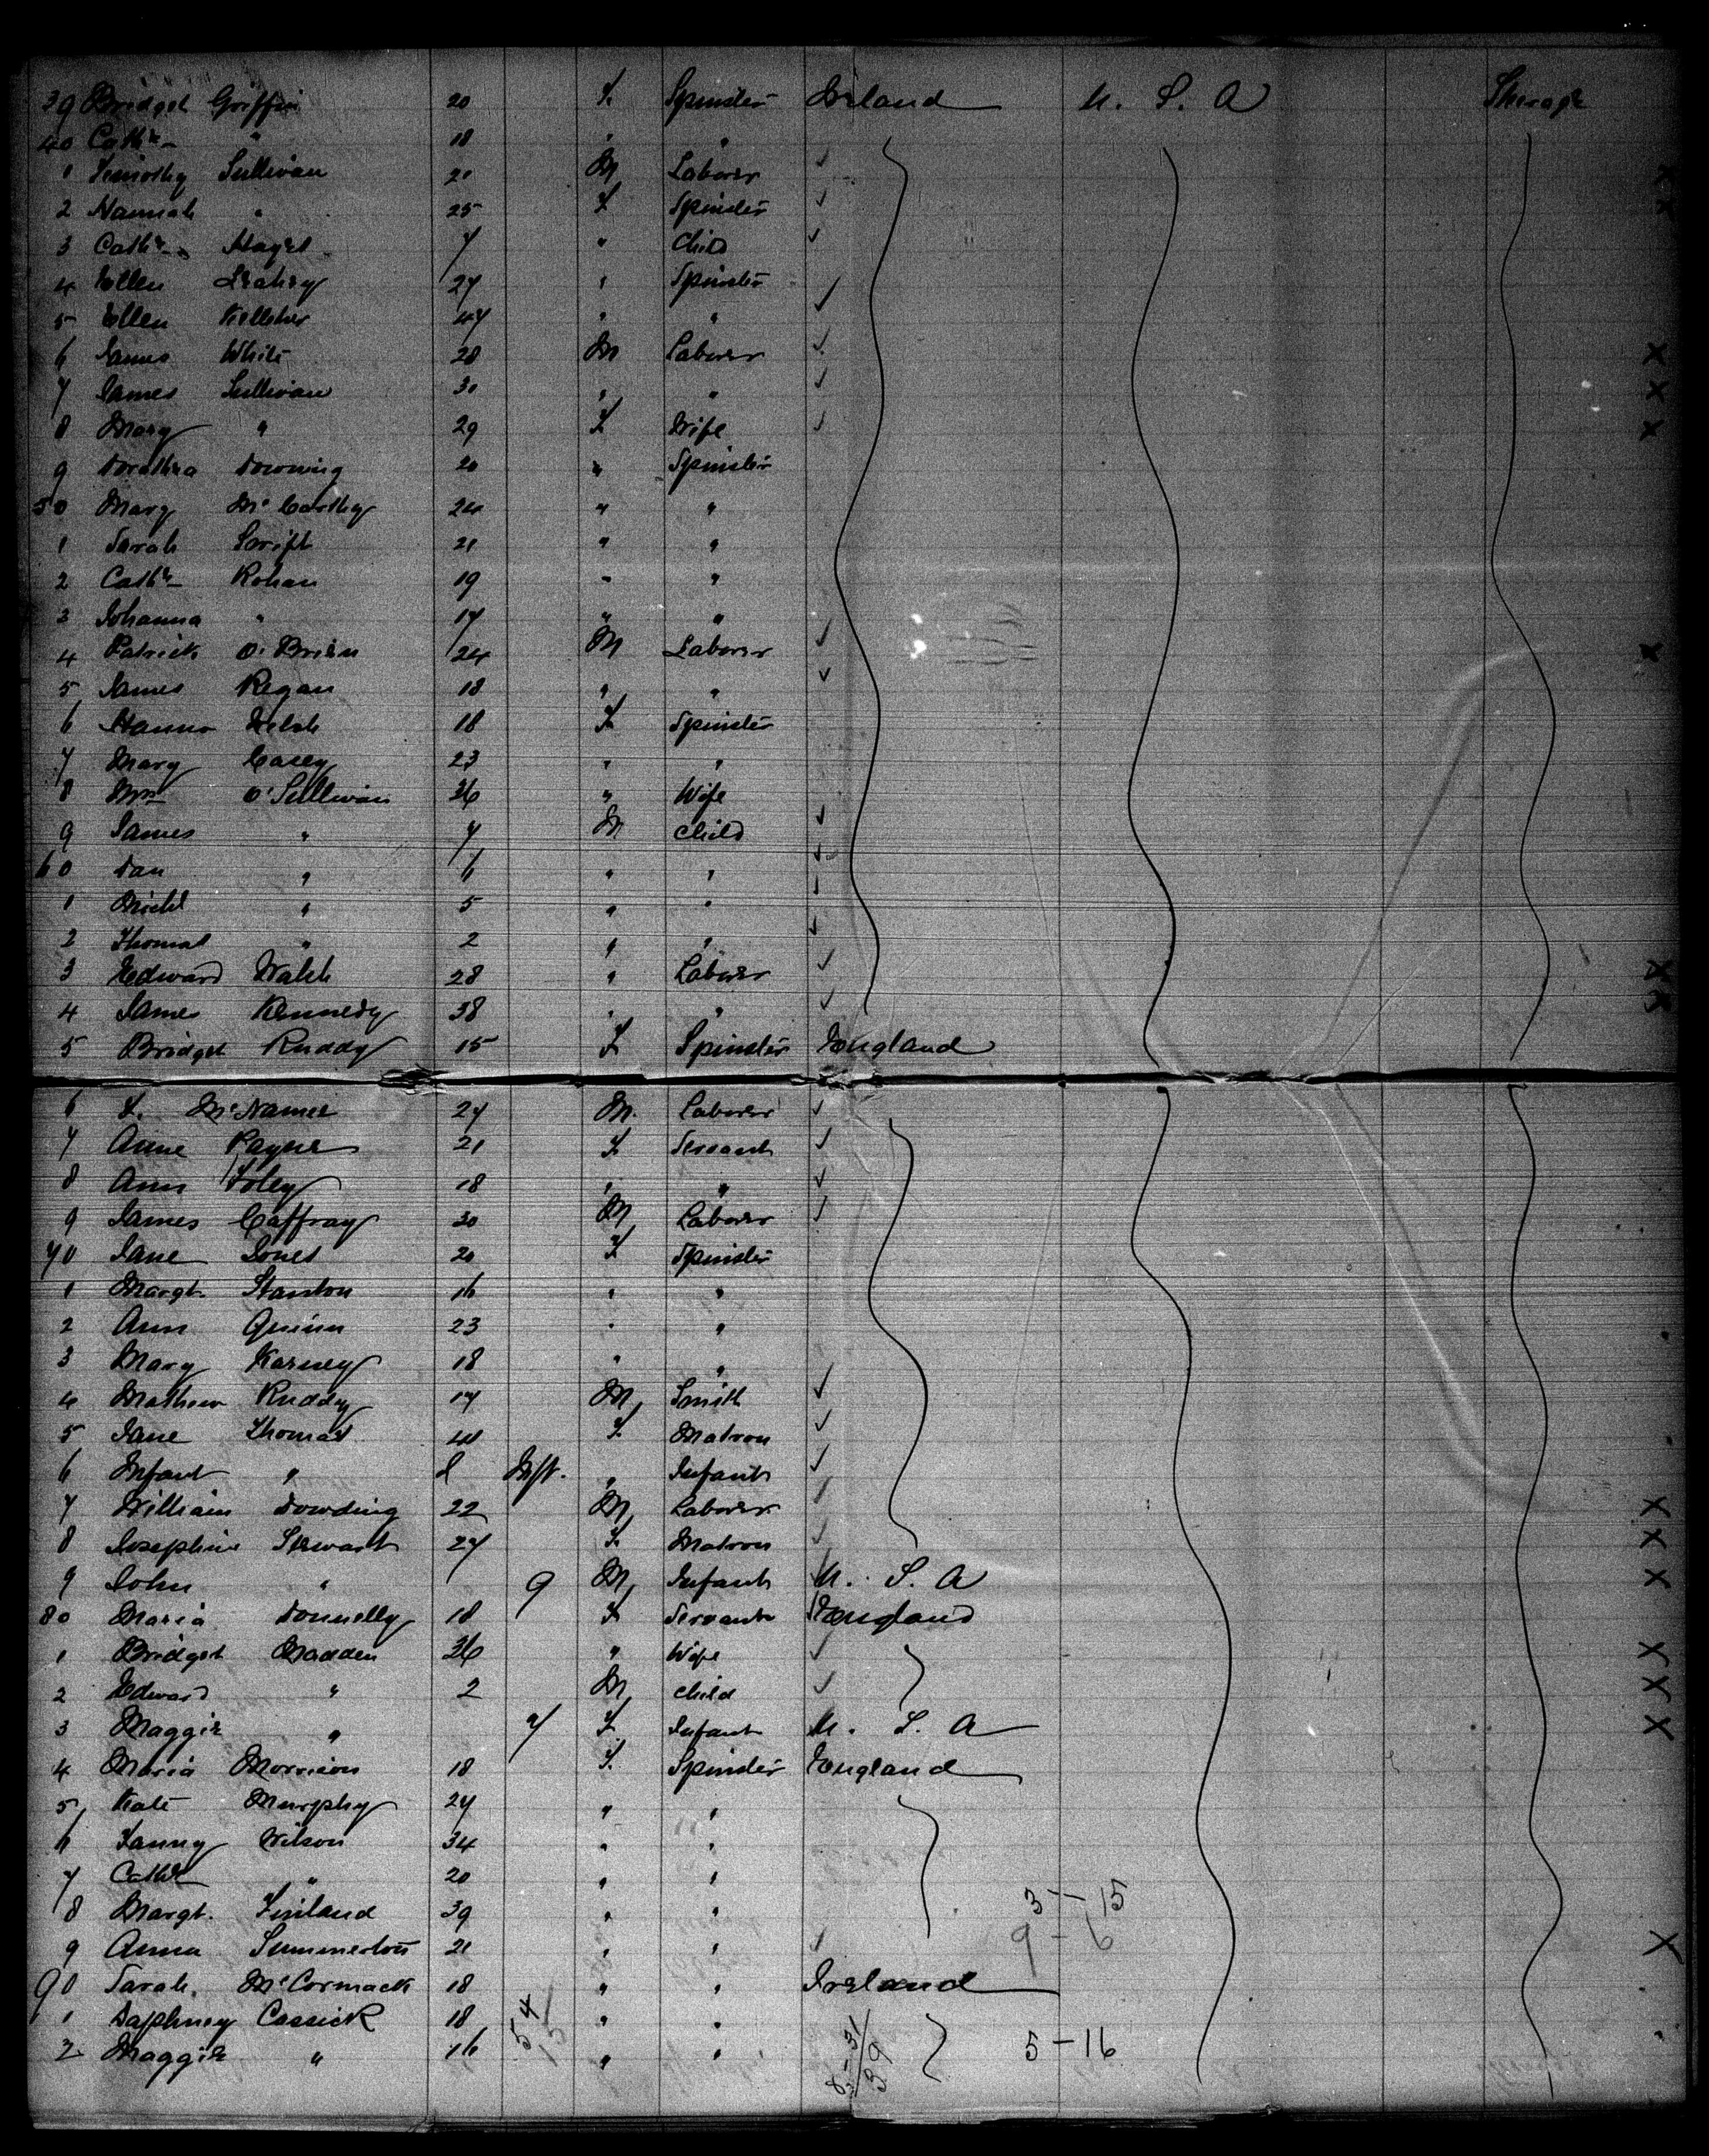 39 Bridget Griffin 20 F. Spinster Ireland U. S. A Steerage
40 Cathe " 18 " "
1 Timothy Sullivan 21 M Laborer
2 Hannah " 25 F Spinster
3 Cathe 7 " Child
4 Ellen Leahey 27 " Spinster
5 Ellen Kelleher 47 " "
6 James White 28 M Laborer
7 James Sullivan 30 " "
8 Mary " 29 F Wife
9 Dorothea Downing 20 " Spinster
50 Mary McCarthy 24 " "
1 Sarah 21 " "
2 Cathe Rohan 19 " "
3 Johanna " 17 " "
4 Patrick O'Brien 24 M Laborer
5 James Regan 18 " "
6 Hanna Welsh 18 F Spinster
7 Mary Casey 23 " "
8 Mrs O'Sullivan 36 " Wife
9 James " 7 M child
60 Dan " 6 " "
1 Michl " 5 " "
2 Thomas " 2 " "
3 Edward Walsh 28 " Laborer
4 James Kennedy 38 " "
5 Bridget Ruddy 15 F Spinster England
6 McNamee 27 M. Laborer
7 Anne Payne 21 F Servant
8 Ann Foley 18 " "
9 James Caffray 30 M Laborer
70 Jane Jones 20 F Spinster
1 Margt. Stanton 16 " "
2 Ann Quinn 23 " "
3 Mary Karney 18 " "
4 Mathew Ruddy 17 M Smith
5 Jane Thomas 40 F Matron
6 Infant " Inft. " Infant
7 William Dowding 22 M Laborer
8 Josephine Stewart 27 F Matron
9 John " 9 M Infant U. S. A
80 Maria Donnelly 18 F Servant England
1 Bridget Madden 36 " Wife
2 Edward " 2 M child
3 Maggie " 7 F Infant U. S. A
4 Maria Morrison 18 F. Spinster England
5 Kate Murphy 27 " "
6 Fanny Wilson 34 " "
7 Cathe " 20 " "
8 Margt. Finland 39 " " 3 - 15
9 Anna Summerton 21 " " 9 - 6
90 Sarah. McCormack 18 " " Ireland
1 Daphney Cossick 18 54 " "
2 Maggie " 16 15 " " 8 - 31 39 5 - 16